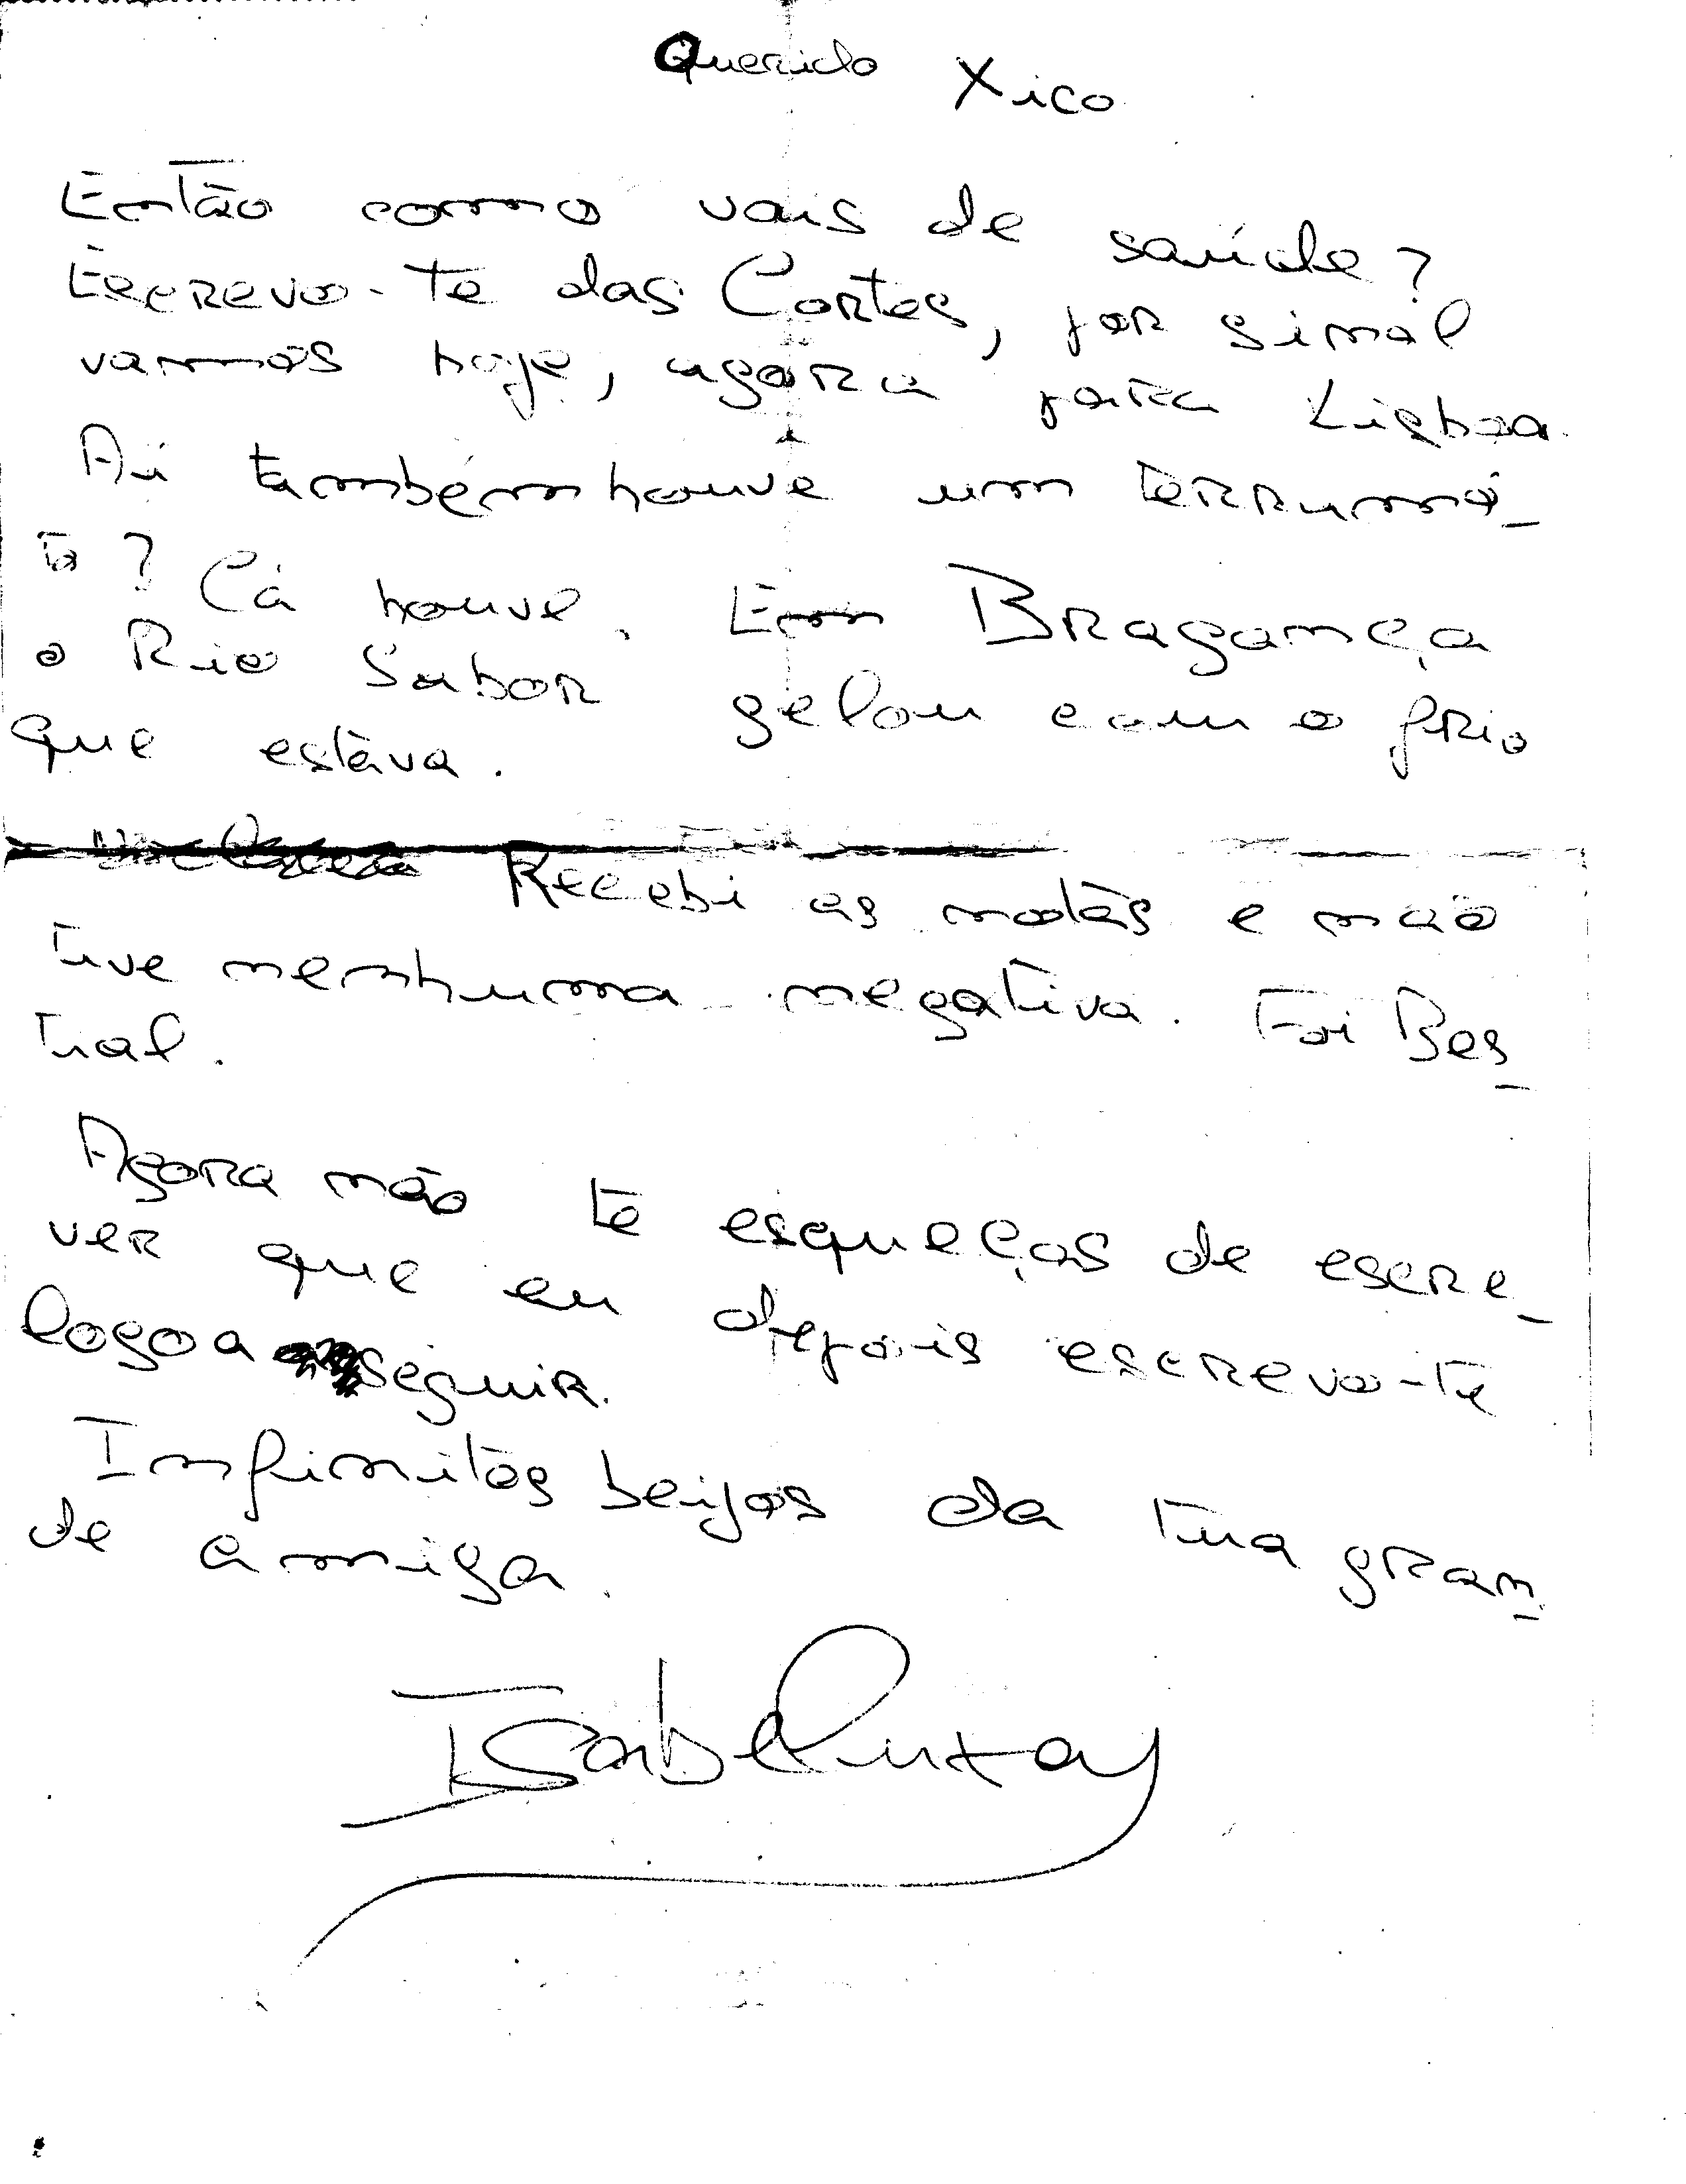 Querido Xico
Então como vais de saúde?
Escrevo-te das Cortes, por sinal
vamos hoje, agora para Lisboa.
Aí também houve um terramo-
to? Cá houve. Em Bragança
o Rio Sabor gelou com o frio
que estava.
Recebi as notas e não
tive nenhuma negativa. Foi Bes-
tial.
Agora não te esqueças de escre-
ver que eu depois escrevo-te
logo a seguir.
Infinitos beijos da tua gran-
de amiga.